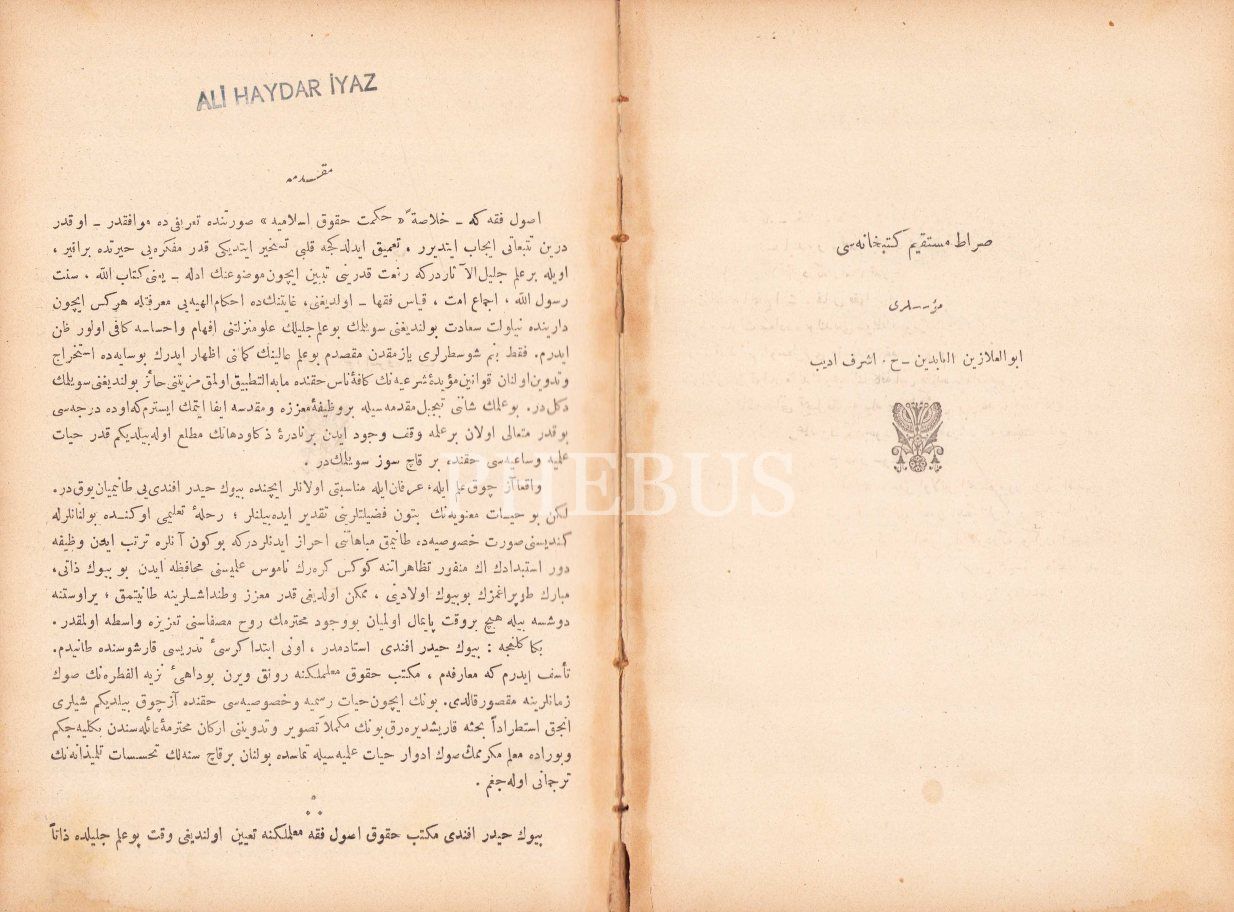 صراط مستقیم کتبخانه‌سی
مؤسسلری
ابوالعلا زین العابدین – ح . اشرف ادیب
ALİ HAYDAR İYAZ
مقدمه
اصول فقه که – خلاصةً « حکمت حقوق اسلامیه » صورتنده تعرافی ده موافقدر – او قدر
درین تتبعاتی ایجاب ایتدیرر . تعمیق ایدلدکجه قلبی تسخیر ایتدیکی قدر مفکره‌یی حیرتده براقیر ،
اویله بر علم جلیل الآثاردرکه رفعت قدرینی تبیین ایچون موضوعنك ادله – یعنی کتاب الله ، سنت
رسول الله ، اجماع امت ، قیاس فقها – اولدیغنی، غایتنك ده احکام الهیه‌یی معرفتله هرکس ایچون
دارینده نیلولت سعادت بولندیغنی سویلمك بو علم جلیلك علو منزلتنی افهام و احساسه کافی اولور ظن
ایدرم . فقط بنم شو سطرلری یازمقدن مقصدم بو علم عالینك کمانی اظهار ایدرك بو سایه‌ده استخراج
و تدوین اولنان قوانین مؤیدهٔ شرعیه‌نك کافهٔ ناس حقنده مابه التطبیق اولمق مزیتنی حائز بولندیغنی سویلمك
دکل در . بو علمك شاننی تبجیل مقدمه سیله بر وظیفهٔ معززه و مقدسه ایفا ایتمك ایسترم که اوده درجه‌سی
بو قدر متعالی اولان بر علمه وقف وجود ایدن بر نادرهٔ ذکا و دهانك مطلع اوله بیلدیکم قدر حیات
علمیه و ساعیه‌سی حقنده بر قاچ سوز سویلمك در .
واقعا آز چوق علم ایله، عرفان ایله مناسبتی اولانلر ایچنده بیوك حیدر افندی یی طانیمیان یوق در.
لکن بو حیات معنویه‌نك بتون فضیلتلرینی تقدیر ایده بیلنلر ؛ رحلهٔ تعلیمی اوکنده بولنانلرله
کندیسنی صورت خصوصیه‌ده طانیمق مباهاتنی احراز ایدنلردرکه بوکون آنلره ترتب ایدن وظیفه
دور استبدادك اك منفور تظاهراتنه کوکس کره‌رك ناموس علمیسنی محافظه ایدن بو بیوك ذاتی،
مبارك طوپراغمزك بو بیوك اولادینی ، ممکن اولدیغی قدر معزز وطنداشلرینه طانیتمق ؛ یر اوستنه
دوشسه بیله هیچ بر وقت پایمال اولمیان بو وجود محترمك روح مصفاسنی تعزیزه واسطه اولمقدر .
بکا کلنجه : بیوك حیدر افندی استادمدر ، اونی ابتدا کرسیٔ تدریسی قارشوسنده طانیدم.
تأسف ایدرم که معارفه‌م ، مکتب حقوق معلملکنه رونق ویرن بو داهیٔ نزیه الفطره‌نك صوك
زمانلرینه مقصور قالدی. بونك ایچون حیات رسمیه و خصوصیه‌سی حقنده آز چوق بیلدیکم شیلری
انجق استطراداً بحثه قاریشدیره‌رق بونك مکملاً تصویر و تدویننی ارکان محترمهٔ عائله‌سندن بکلیه‌جکم
و بوراده معلم مکرممك صوك ادوار حیات علمیه‌سیله تماسده بولنان بر قاچ سنه‌لك تحسسات تلمیذانه‌نك
ترجمانی اوله‌جغم .
بیوك حیدر افندی مکتب حقوق اصول فقه معلملکنه تعیین اولندیغی وقت بو علم جلیلده ذاتاً
PHEBUS